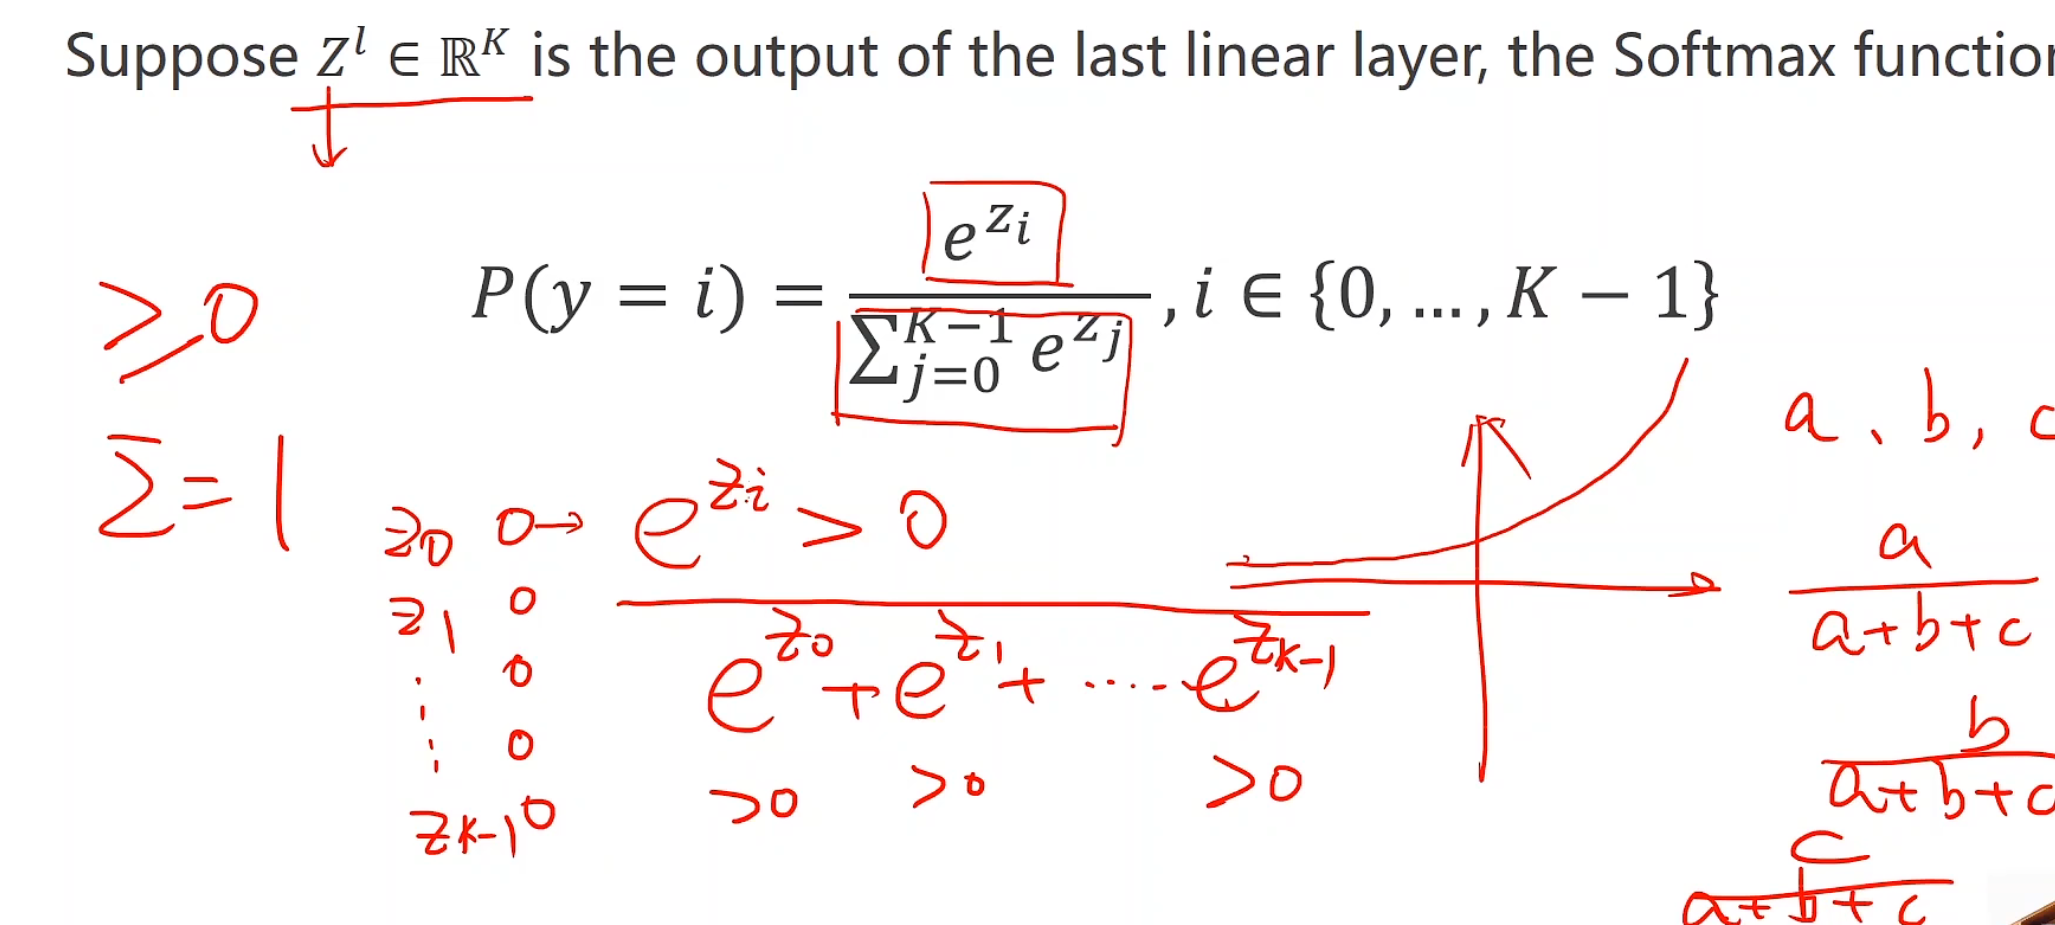 Suppose Z^l ∈ ℝ^K is the output of the last linear layer, the Softmax function
P(y = i) = e^{z_i} / ∑_{j=0}^{K−1} e^{z_j} , i ∈ {0, … , K − 1}
≥0
Σ=1
a、b, c
z0 0→ e^{zi} > 0
z1 0
0
0
zK-1 0
e^{z0} + e^{z1} + ..... e^{zK-1}
>0 >0 >0
a
a+b+c
b
a+b+c
c
a+b+c